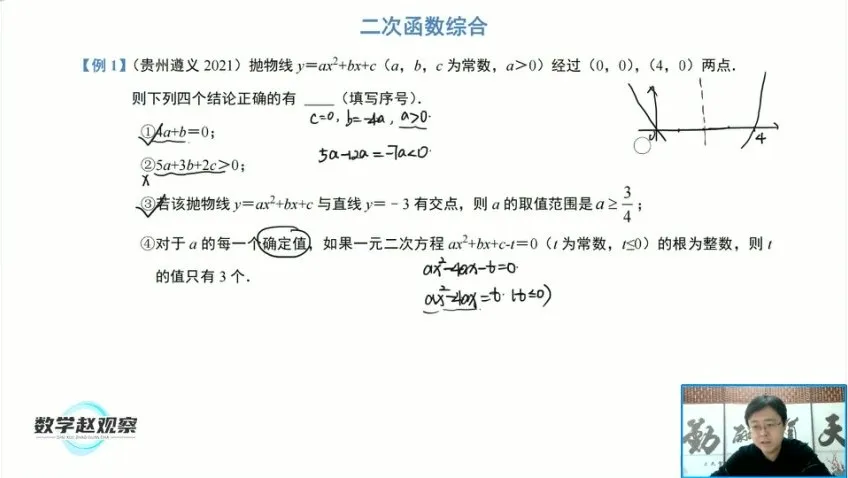 二次函数综合
【例1】(贵州遵义 2021)抛物线 y=ax²+bx+c(a,b,c 为常数,a>0)经过(0,0),(4,0)两点.
则下列四个结论正确的有 ____ (填写序号).
c=0, b=-4a, a>0.
①4a+b=0;
5a-12a=-7a<0.
②5a+3b+2c>0;
x
4
③若该抛物线 y=ax²+bx+c 与直线 y=-3 有交点,则 a 的取值范围是 a≥3/4;
④对于 a 的每一个确定值,如果一元二次方程 ax²+bx+c-t=0(t 为常数,t≤0)的根为整数,则 t
的值只有 3 个.
ax²-4ax-t=0.
ax²-4ax=t. (t≤0)
数学赵观察
SHU XUE ZHAO GUAN CHA
天
勤